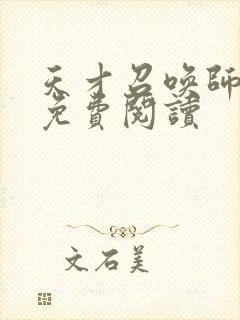 天才召唤師
免費閱讀
文石美